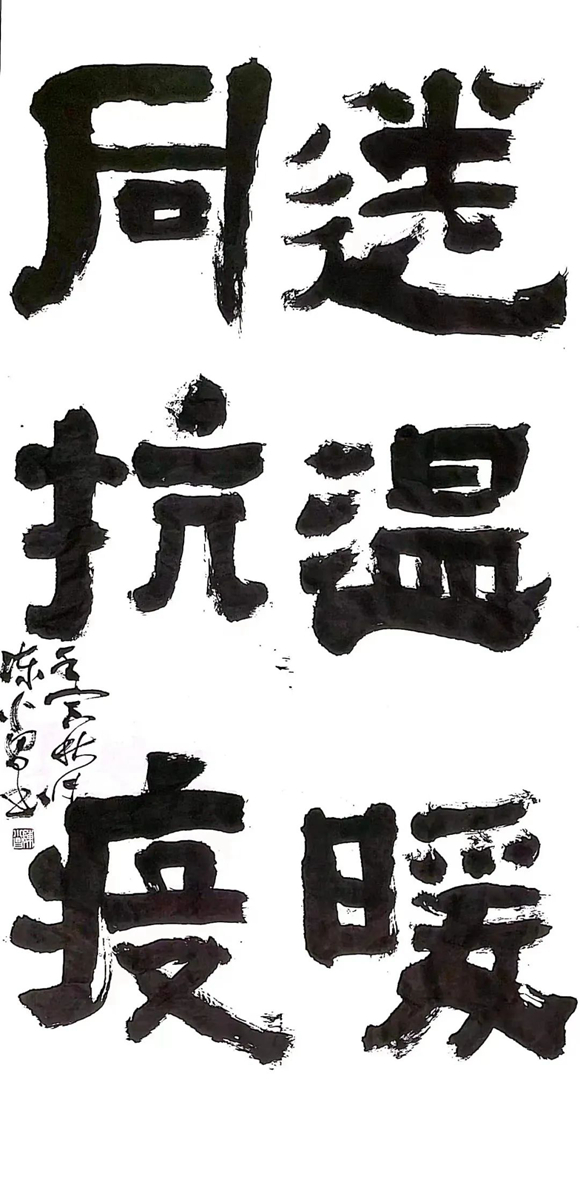 送温暖
同抗疫
壬寅秋月
陈小昌书